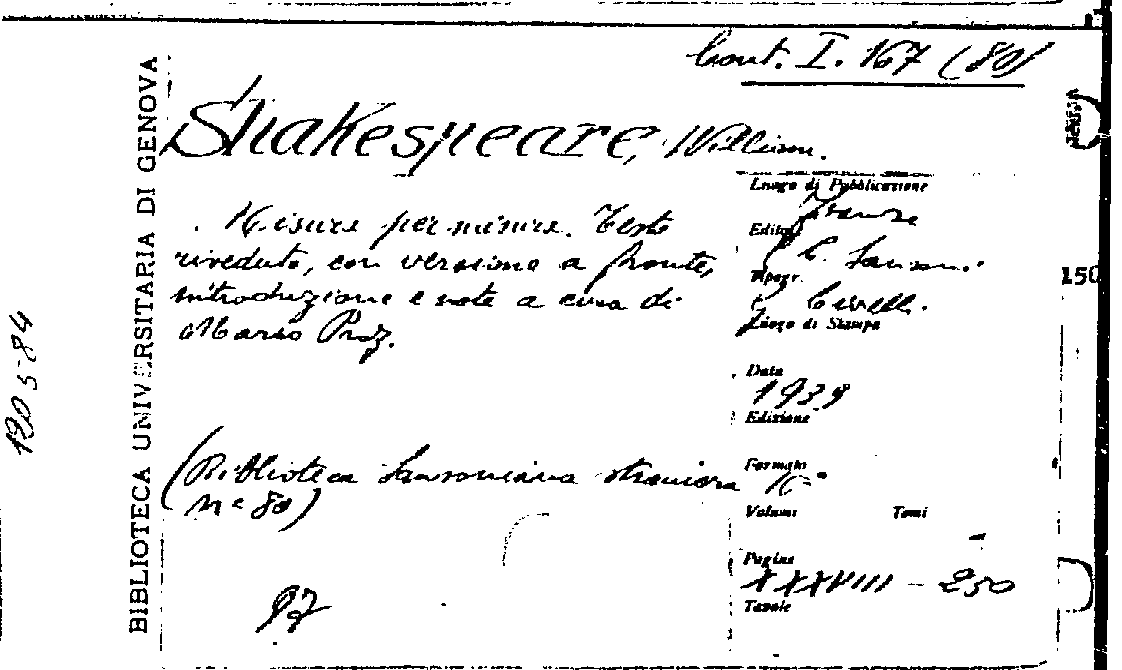 Cont. I. 167 (80)
Shakespeare, William.
Misura per misura. Testo
riveduto, con versione a fronte,
introduzione e note a cura di
Mario Praz.
(Biblioteca Sansoniana straniera
n° 80)
Luogo di Pubblicazione
Firenze
Editore
G. C. Sansoni.
Tipogr.
G. Civelli.
Luogo di Stampa
Data
1939
Edizione
Formato
16°
Volumi Tomi
-
Pagine
XXXVIII - 250
Tavole
BIBLIOTECA UNIVERSITARIA DI GENOVA
150